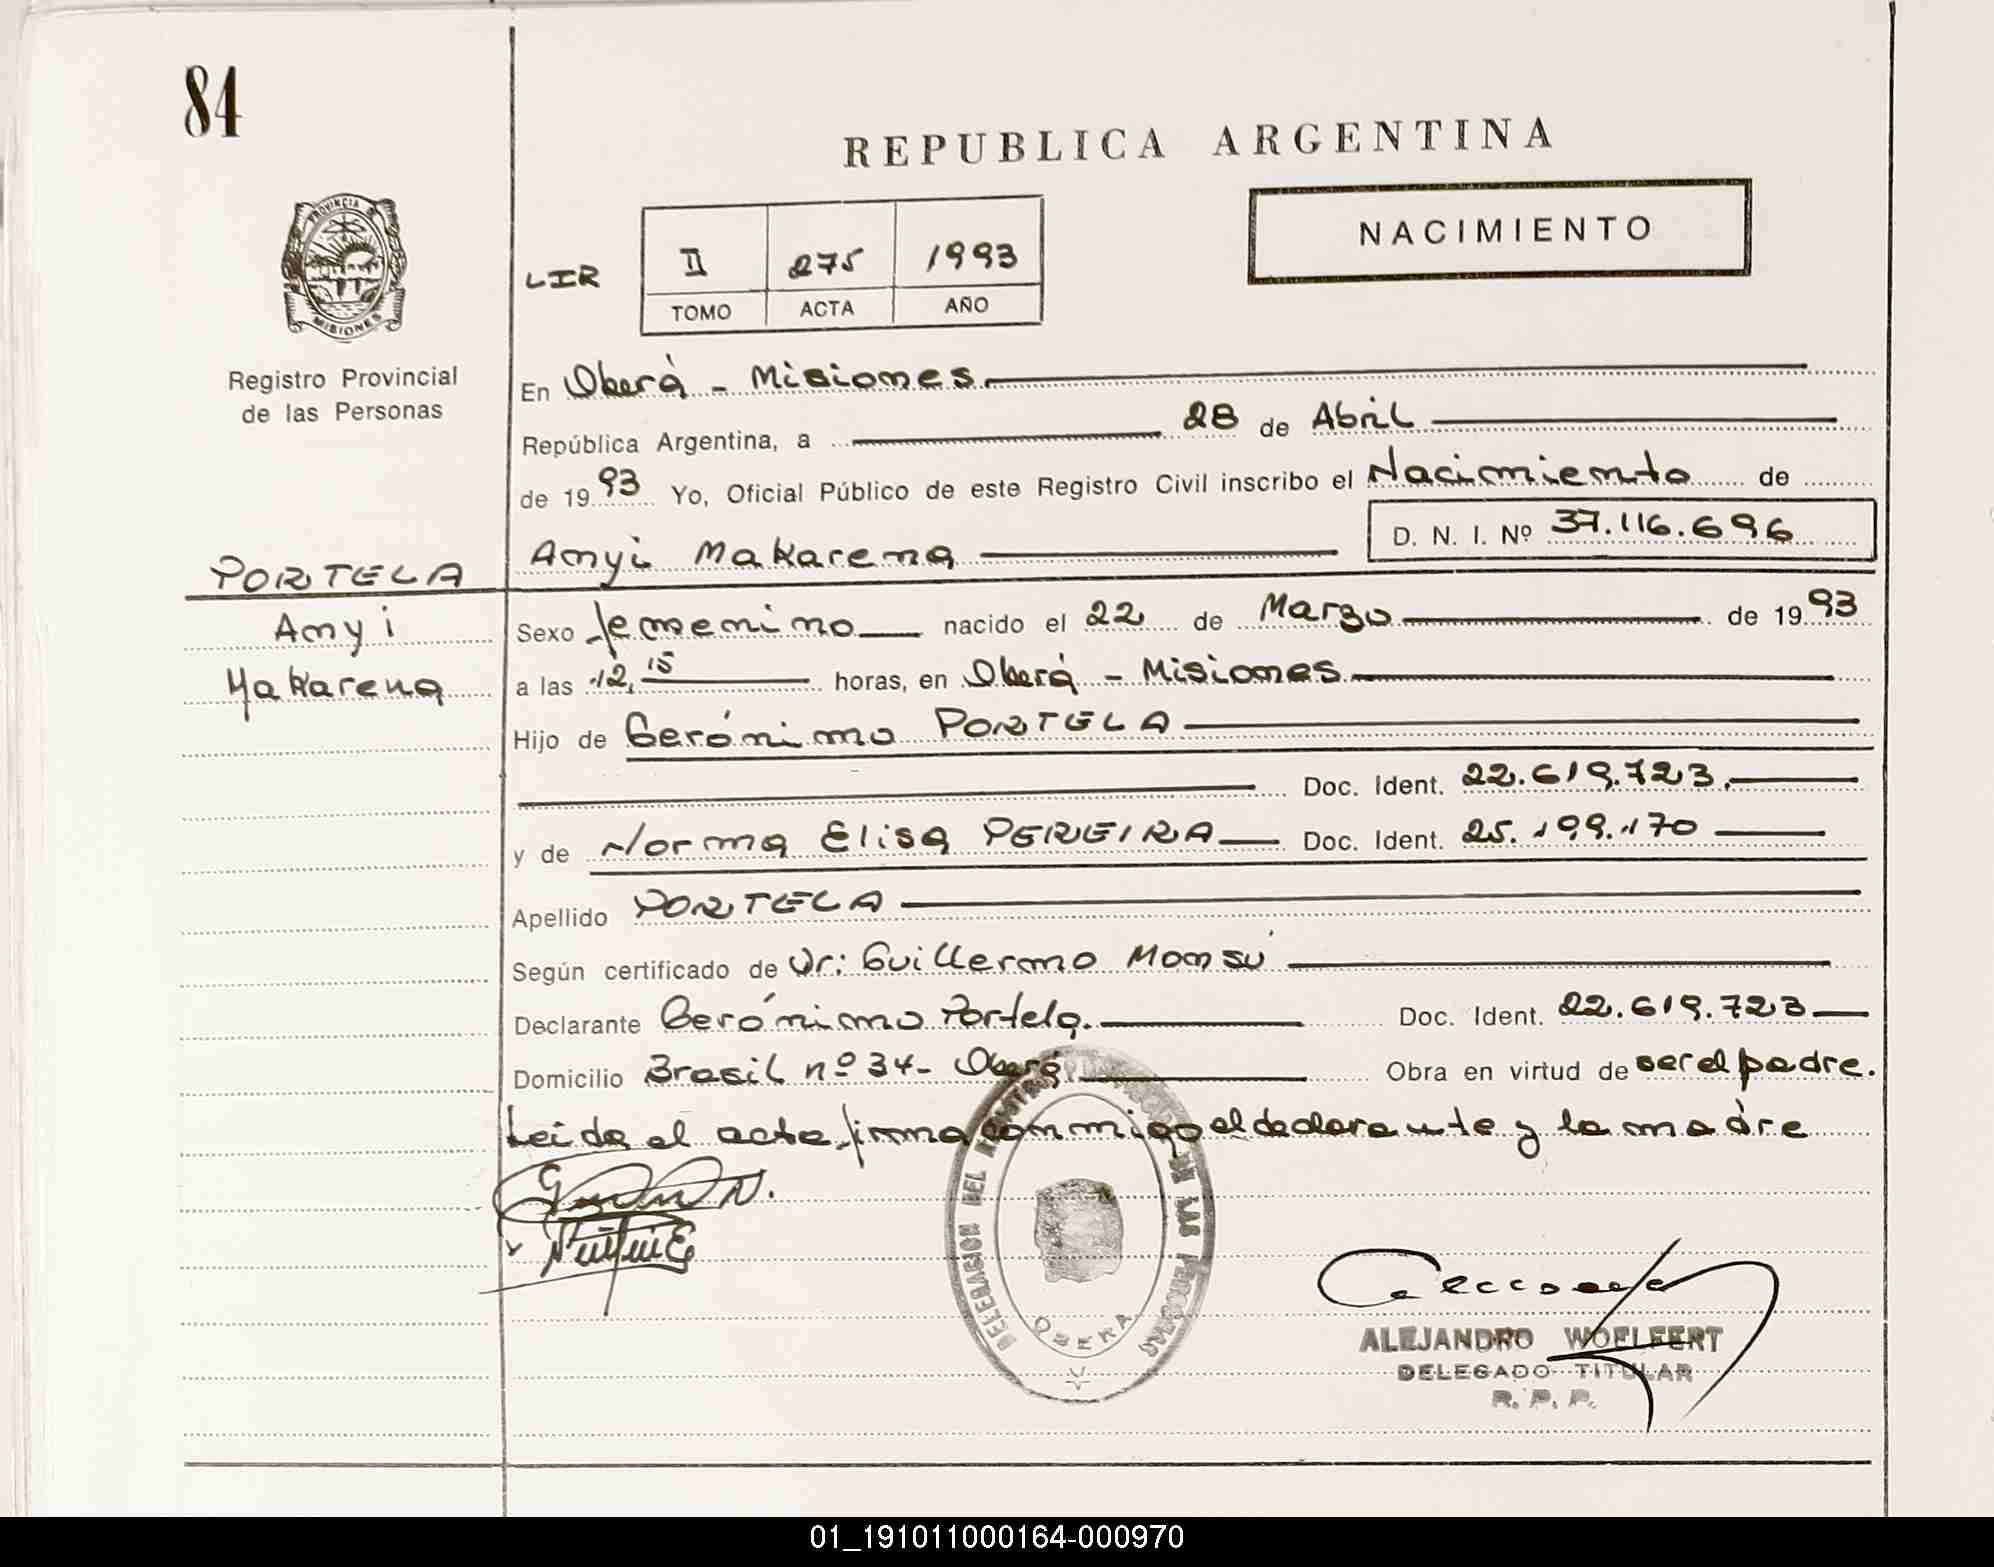 84
REPUBLICA ARGENTINA
NACIMIENTO
PROVINCIA DE
MISIONES
Registro Provincial
de las Personas
LIR
II 275 1993
TOMO ACTA AÑO
En Oberá - Misiones
República Argentina, a 28 de Abril
de 1993 Yo, Oficial Público de este Registro Civil inscribo el Nacimiento de
D. N. I. Nº 37.116.696
PORTELA Amyi Makarena
Amyi Sexo femenino nacido el 22 de Marzo de 1993
Makarena a las 12,15 horas, en Oberá - Misiones
Hijo de Gerónimo PORTELA
Doc. Ident. 22.619.723.
y de Norma Elisa PEREIRA Doc. Ident. 25.199.170
Apellido PORTELA
Según certificado de Dr: Guillermo Monsú
Declarante Gerónimo Portela. Doc. Ident. 22.619.723
Domicilio Brasil nº 34 - Oberá Obra en virtud de ser el padre.
Leida el acta firma conmigo el declarante y la madre
DELEGACION DEL REGISTRO DE LAS PERSONAS
OBERA
ALEJANDRO WOELFERT
DELEGADO TITULAR
R. P. P.
01_191011000164-000970